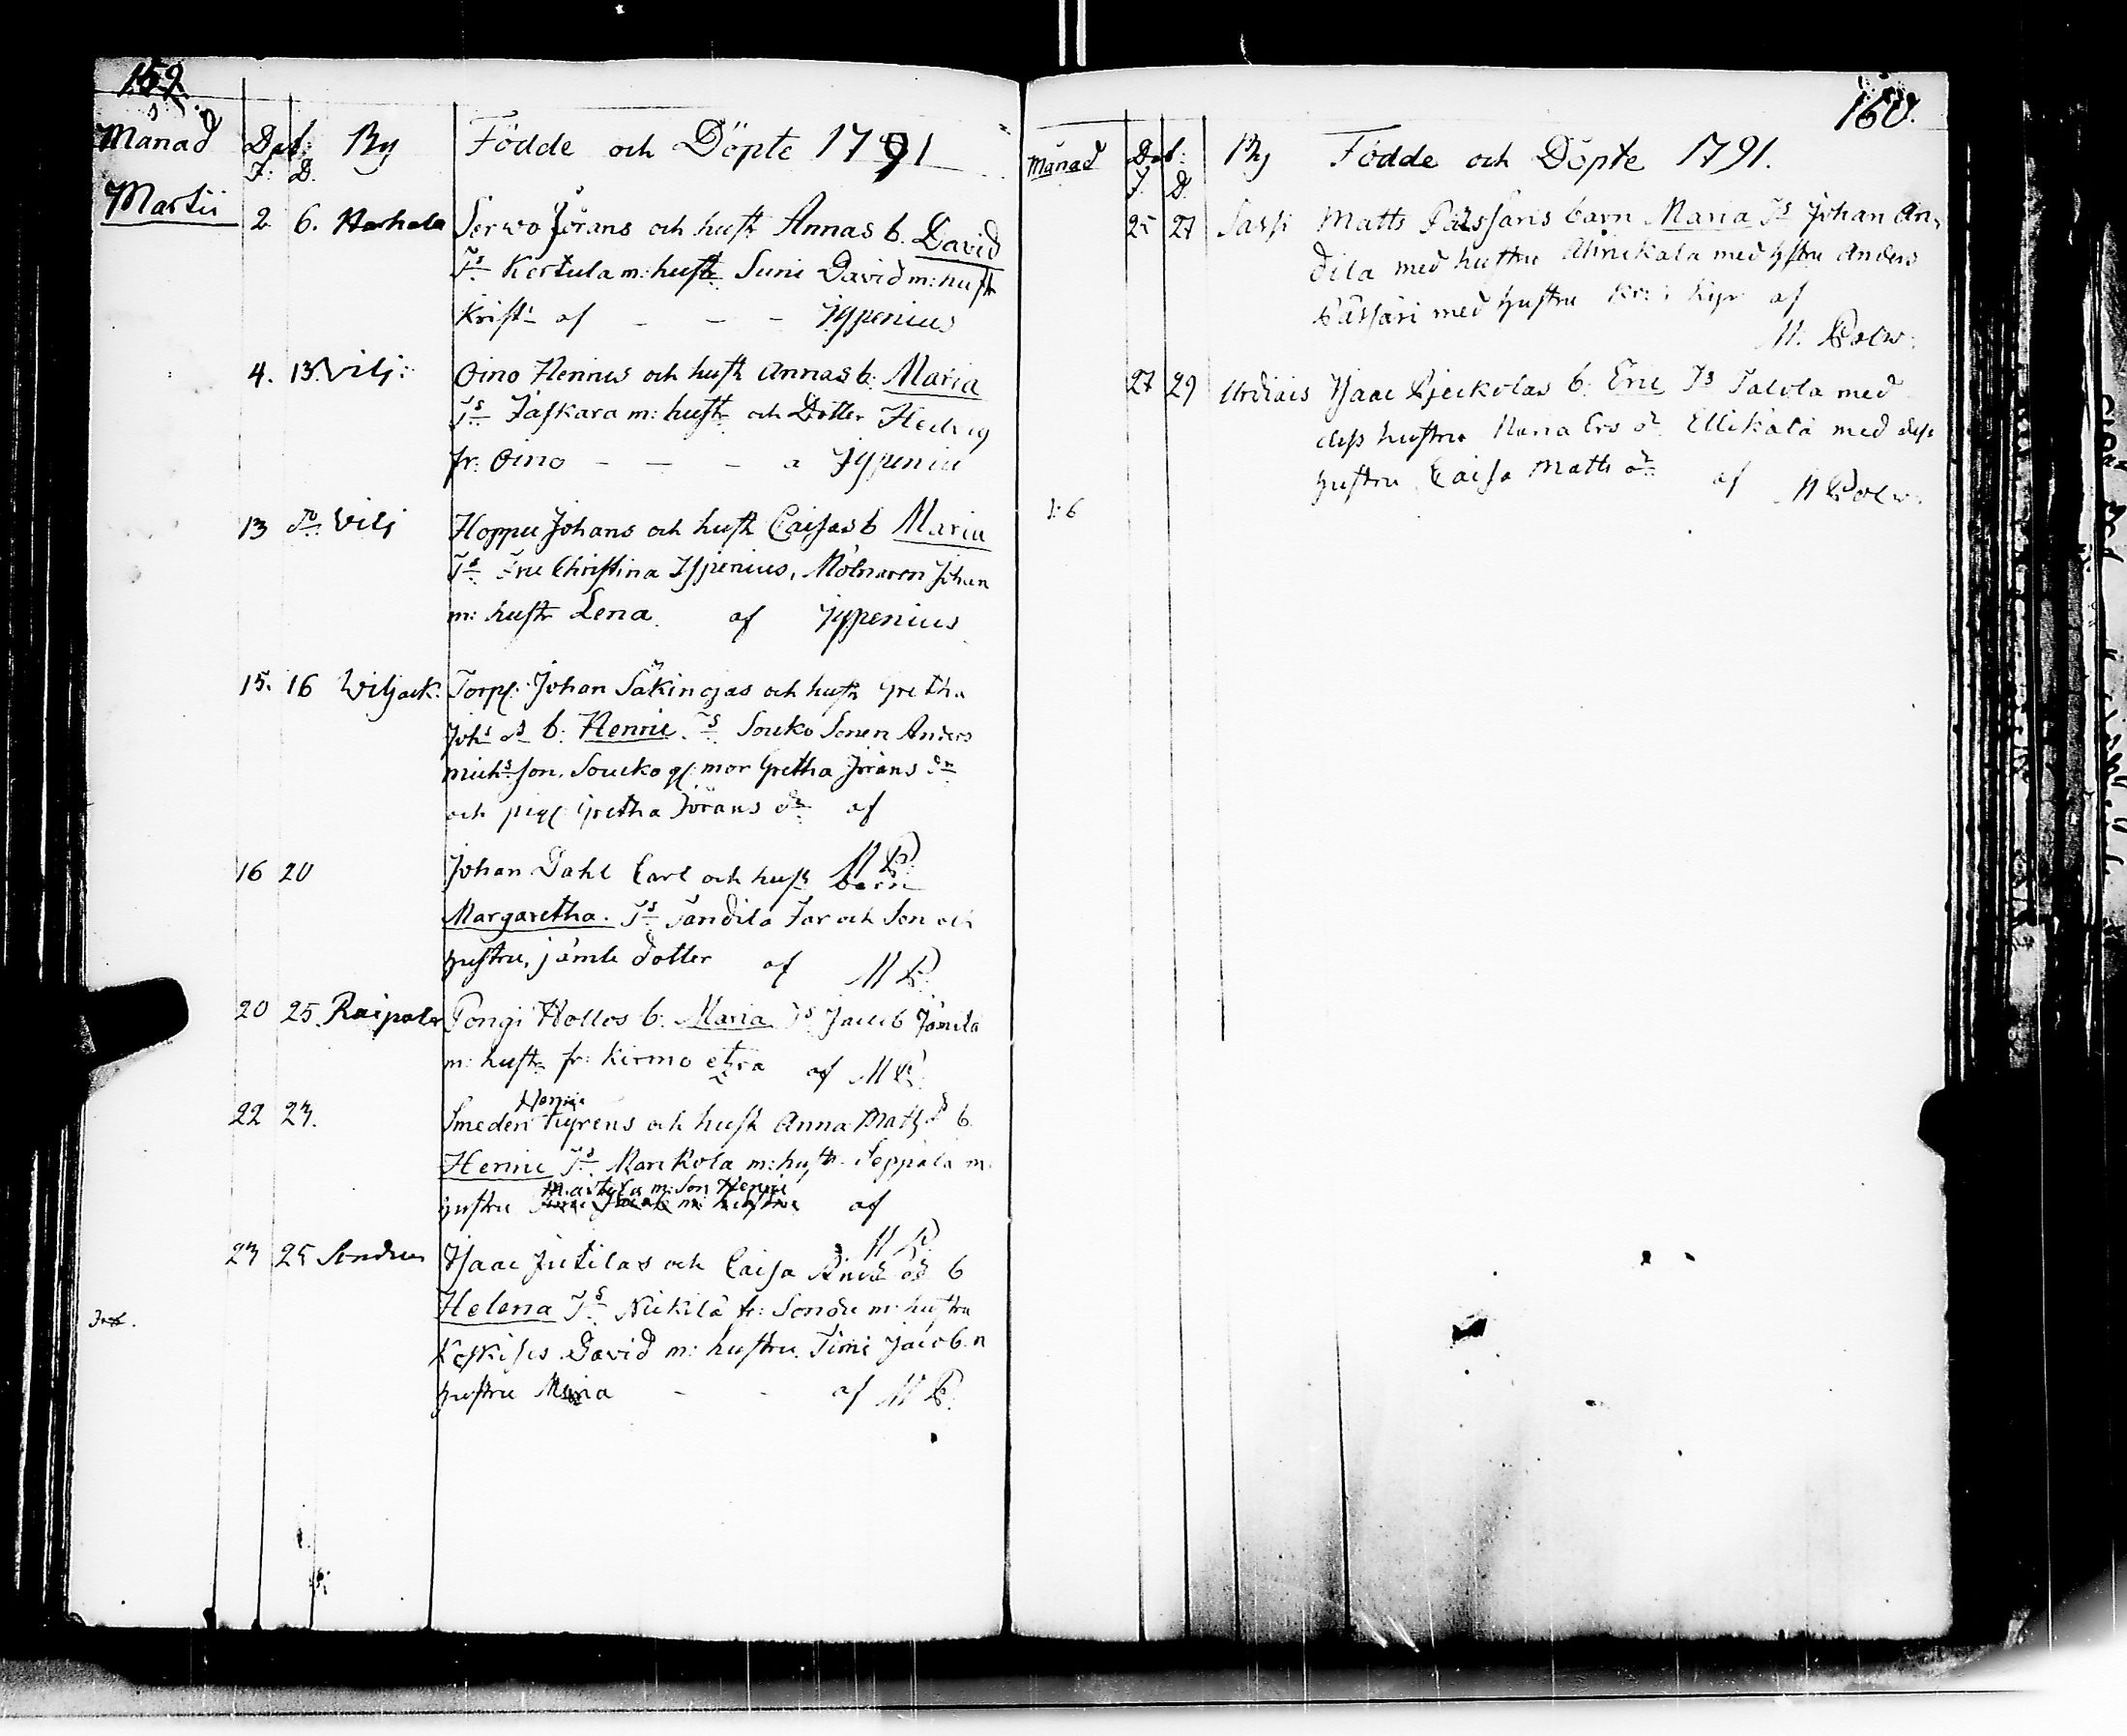 159.
Månad Dat: By Födde och Döpte 1791
F: D.
Martii
2 6. Herhala Serwo Jörans och hustr Annas b. David
Ts Kertula m: hustr Suni David m: hustr
Krist: af - - - Ispenius
4. 13. Vilj: Oino Hennes och hustr Annas b: Maria
Ts Jaskara m: hustr och Dotter Hedvig
fr: Oino - - - a Ispenius
13 do Vilj Hoppu Johans och hustr Caisas b Maria
Ts Fru Christina Ispenius, Mölnaren Johan
m: hustr Lena. af Ispenius
15. 16 Wiljack. Torp: Johan Säkinojas och hustr Gretha
Johs d b: Henric. Ts Souko Sonen Anders
Michs son, Soucko g: mor Gretha Jörans dr
och pig: Gretha Jörans dr af
M P.
16 20 Johan Dahl Carl och hustr barn
Margaretha. Ts Tandila Far och Son och
hustru, jämte dotter af M P.
20 25 Raipala Pongi Hollos b: Maria Ts Jacob Jämilä
m: hustr fr: Kirmo etra af M P.
22 23. Smeden Henric Tyrens och hustr Anna Matts d b
Henric Ts Markola m: hustr Seppälä m:
hustru Martyla m: Son Henric af
M P.
23 25 Sondu Isaac Jutilas och Caisa And: ds b
Helena Ts Nickilä fr: Sondu m: hustru
Koskises David m: hustru. Timi Jacob n
hustru Maria - - af M P.
160.
Månad Dat: By Födde och Döpte 1791.
F. D.
25 27 Sassi Matts Pässäris barn Maria Ts Johan An-
dila med hustru Ahnikala med hstru Anders
Pässäri med hustru Kr: i Kyr af
M. Polw:
27 29 Urdiais Isaac Pjeckolas b: Eric Ts Talola med
dess hustru Maria Ers dr Ellikälä med dess
hustru Caisa Matts dr af M Polw:
1:6